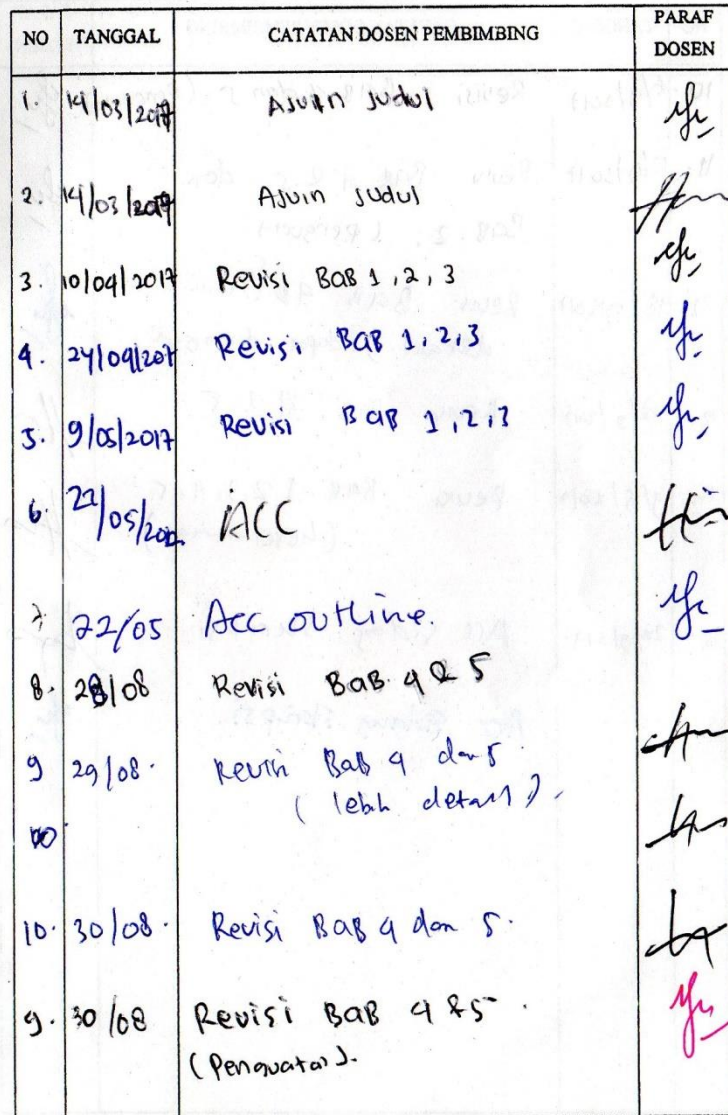 NO TANGGAL CATATAN DOSEN PEMBIMBING PARAF DOSEN
1. 14/03/2017 AJUIN JUDUL
2. 14/03/2017 AJUIN JUDUL
3. 10/04/2017 Revisi BAB 1, 2, 3
4. 24/04/2017 Revisi BAB 1, 2, 3
5. 9/05/2017 Revisi BAB 1, 2, 3
6. 22/05/2017 ACC
7 22/05 Acc outline.
8. 28/08 Revisi BAB 4 & 5
9 29/08. Revisi Bab 4 dan 5
(lebih detail).
10. 30/08. Revisi BAB 4 dan 5.
9. 30/08 Revisi BAB 4 & 5.
(Penguatan).